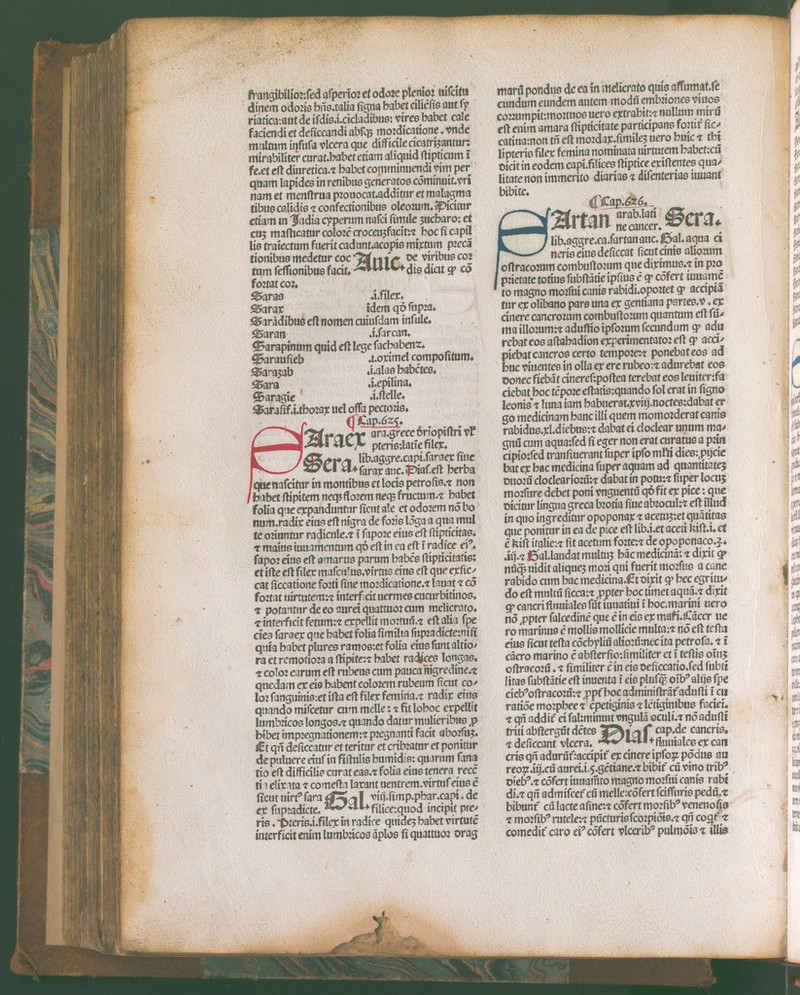 frangibilior:sed asperior et odore plenior uiscitu
dinem odoris hñs.talia signa habet ciliẽsis aut sy
riatica:aut de isdis.i.cicladibus: vires habet cale
faciendi et desiccandi absqꝫ mordicatione. vnde
multum infusa vlcera que difficile cicatrizantur:
mirabiliter curat.habet etiam aliquid stipticum ĩ
se.et est diuretica.⁊ habet comminuendi vim per
quam lapides in renibus generatos cõminuit.vri
nam et menstrua prouocat.additur et malagma
tibus calidis ⁊ confectionibus oleorum. Dicitur
etiam in India cyperum nasci simile zucharo: et
cuꝫ masticatur colorẽ croceuꝫ facit:⁊ hoc si capil
lis traiectum fuerit cadunt.acopis mixtum precã
tionibus medetur coc Auic. De viribus cor
tum sessionibus facit. dis dicit ꝙ cõ
fortat cor.
Saras .i.filex.
Sarax idem qõ supra.
Sarádibus est nomen cuiusdam insule.
Saran .i.sarcan.
Sarapinum quid est lege sachabenz.
Sarausieb .i.oximel compositum.
Sarazab .i.alas habẽtes.
Sara .i.epilina.
Saragie .i.stelle.
Sarasif.i.thorax uel ossa pectoris.
¶Cap.625.
SAraex ara.grece driopistri vľ
pteris:latie filex.
Sera. lib.aggre.capi.saraex siue
sarax auc. Dias.est herba
que nascitur in montibus et locis petrosis.⁊ non
habet stipitem neqꝫ florem neqꝫ fructum.⁊ habet
folia que expanduntur sicut ale et odorem nõ bo
num.radix eius est nigra de foris lõga a qua mul
te oriuntur radicule.⁊ ĩ sapore eius est stipticitas.
⁊ maius iuuamentum qõ est in ea est ĩ radice ei⁹.
sapor eius est amarus parum habẽs stipticitatis:
et iste est filex masculus.virtus eius est que exsic-
cat siccatione forti sine mordicatione.⁊ lauat ⁊ cõ
fortat uirtutem:⁊ interficit uermes cucurbitinos.
⁊ potantur de eo aurei quattuor cum melicrato.
⁊ interficit fetum:⁊ expellit mortuũ.⁊ est alia spe
cies saraex que habet folia similia supradicte:nisi
quia habet plures ramos:et folia eius sunt altio-
ra et remotiora a stipite:⁊ habet radices longas.
⁊ color earum est rubeus cum pauca nigredine.⁊
quedam ex eis habent colorem rubeum sicut co-
lor sanguinis:et ista est filex femina.⁊ radix eius
quando miscetur cum melle: ⁊ fit lohoc expellit
lumbricos longos.⁊ quando datur mulieribus ꝓ
hibet impregnationem:⁊ pregnanti facit aborsuꝫ.
Et qñ desiccatur et teritur et cribratur et ponitur
de puluere eius in fistulis humidis: quarum sana
tio est difficilis curat eas.⁊ folia eius tenera recẽ
ti elixata ⁊ comesta laxant uentrem.virtus eius ẽ
sicut uirt⁹ sara Gal. viij.simp.phar.capi. de
ex supradicte. filice:quod incipit pte-
ris. Pteris.i.filex in radice quideꝫ habet virtutẽ
interficit enim lumbricos ãplos si quattuor drag
marũ pondus de ea in melicrato quis assumat.se
cundum eundem autem modũ embriones viuos
corrumpit:mortuos uero extrahit:⁊ nullum mirũ
est enim amara stipticitate participans fortit̃ sic-
catina:non tñ est mordax.simileꝫ uero huic ⁊ thi
lipteris filex femina nominata uirtutem habet:cũ
dicit in eodem capi.filices stiptice existentes qua-
litate non immerito diarias ⁊ disenterias iuuant
bibite.
¶Cap.626.
SArtan arab.lati Sera.
ne cancer.
lib.aggre.ca.sartan auc. Gal. aqua ci
neris eius desiccat sicut cinis aliorum
ostracorum combustorum que diximus.⁊ in pro
prietate totius substãtie ipsius ẽ ꝙ cõfert iuuamẽ
to magno morsui canis rabidi.oportet ꝙ accipiã
tur ex olibano pars una ex gentiana partes.v. ex
cinere cancrorum combustorum quantum est sũ-
ma illorum:⁊ adustio ipsorum secundum ꝙ adu
rebat eos astabadion experimentator est ꝙ acci-
piebat cancros certo tempore:⁊ ponebat eos ad
huc viuentes in olla ex ere rubeo:⁊ adurebat eos
donec fiebãt cineres:postea terebat eos leuiter:fa
ciebat hoc tẽpore estatis:quando sol erat in signo
leonis ⁊ luna iam habuerat.xviij.noctes:dabat er
go medicinam hanc illi quem momorderat canis
rabidus.xl.diebus:⁊ dabat ei cloclear unum ma-
gnũ cum aqua:sed si eger non erat curatus a prin
cipio:sed transiuerant super ipso mľti dies:ꝓijcie
bat ex hac medicina super aquam ad quantitateꝫ
duorũ clocleariorũ:⁊ dabat in potu:⁊ super locuꝫ
morsure debet poni vnguentũ qõ fit ex pice: que
dicitur lingua greca brotia siue abrocul:⁊ est illud
in quo ingreditur opoponax ⁊ acetuꝫ:et quãtitas
que ponitur in ea de pice est lib.i.et aceti kist.i. et
ẽ kist italic:⁊ sit acetum forte:⁊ de opoponaco.ʒ.
.iij.⁊ Gal.laudat multuꝫ hãc medicinã: ⁊ dixit ꝙ
nũqꝫ uidit aliqueꝫ mori qui fuerit morsus a cane
rabido cum hac medicina.Et dixit ꝙ hec egritu-
do est multũ sicca:⁊ ꝓpter hoc timet aquã.⁊ dixit
ꝙ cancri fluuiales sũt iuuatiui ĩ hoc.marini uero
nõ ꝓpter salcedinẽ que ẽ in eis ex mari.Cãcer ue
ro marinus ẽ mollis mollicie multa:⁊ nõ est testa
eius sicut testa cõchyliũ aliorũ:nec ita petrosa. ⁊ ĩ
cãcro marino ẽ abstersio:similiter et ĩ testis oĩuꝫ
ostracorũ. ⁊ similiter ẽ in eis desiccatio.sed subti
litas substãtie est inuenta ĩ eis plusqꝫ oĩb⁹ alijs spe
cieb⁹ostracorũ:⁊ ꝓpť hoc administrãt̃ adusti ĩ cu
ratiõe morphee ⁊ ẽpetiginis ⁊ lẽtiginibus faciei.
⁊ qñ addit̃ ei sal:minuit vngulã oculi.⁊ nõ adusti
triti abstergũt dẽtes Dias. cap.de cancris.
⁊ desiccant vlcera. fluuiales ex can
cris qñ adurũt̃:accipit̃ ex cinere ipsoꝝ põdus au
reoꝝ.iij.cũ aurei.i.s.gẽtiane.⁊ bibit̃ cũ vino trib⁹
dieb⁹.⁊ cõfert iuuamẽto magno morsui canis rabi
di.⁊ qñ admiscet̃ cũ melle:cõfert scissuris pedũ.⁊
bibunt̃ cũ lacte asine:⁊ cõfert morsib⁹ venenosis
⁊ morsib⁹ rutele:⁊ pũcturis scorpiõis.⁊ qñ coqt̃ ⁊
comedit̃ caro ei⁹ cõfert vlcerib⁹ pulmõis ⁊ illis